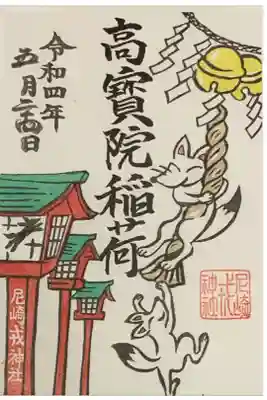 高寶院稲荷
令和四年
五月 日
尼崎戎神社
尼崎
戎
神社